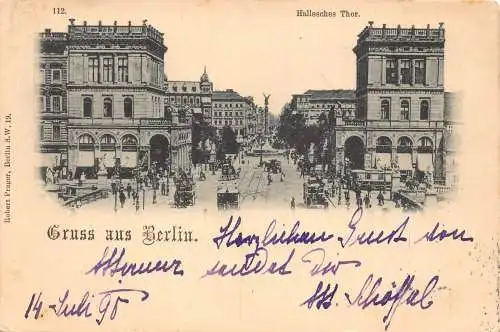 112.
Hallesches Thor.
Robert Prager, Berlin S.W. 19.
Gruss aus Berlin.
Herzlichen Gruss von
sendet Dir
14. Juli 98